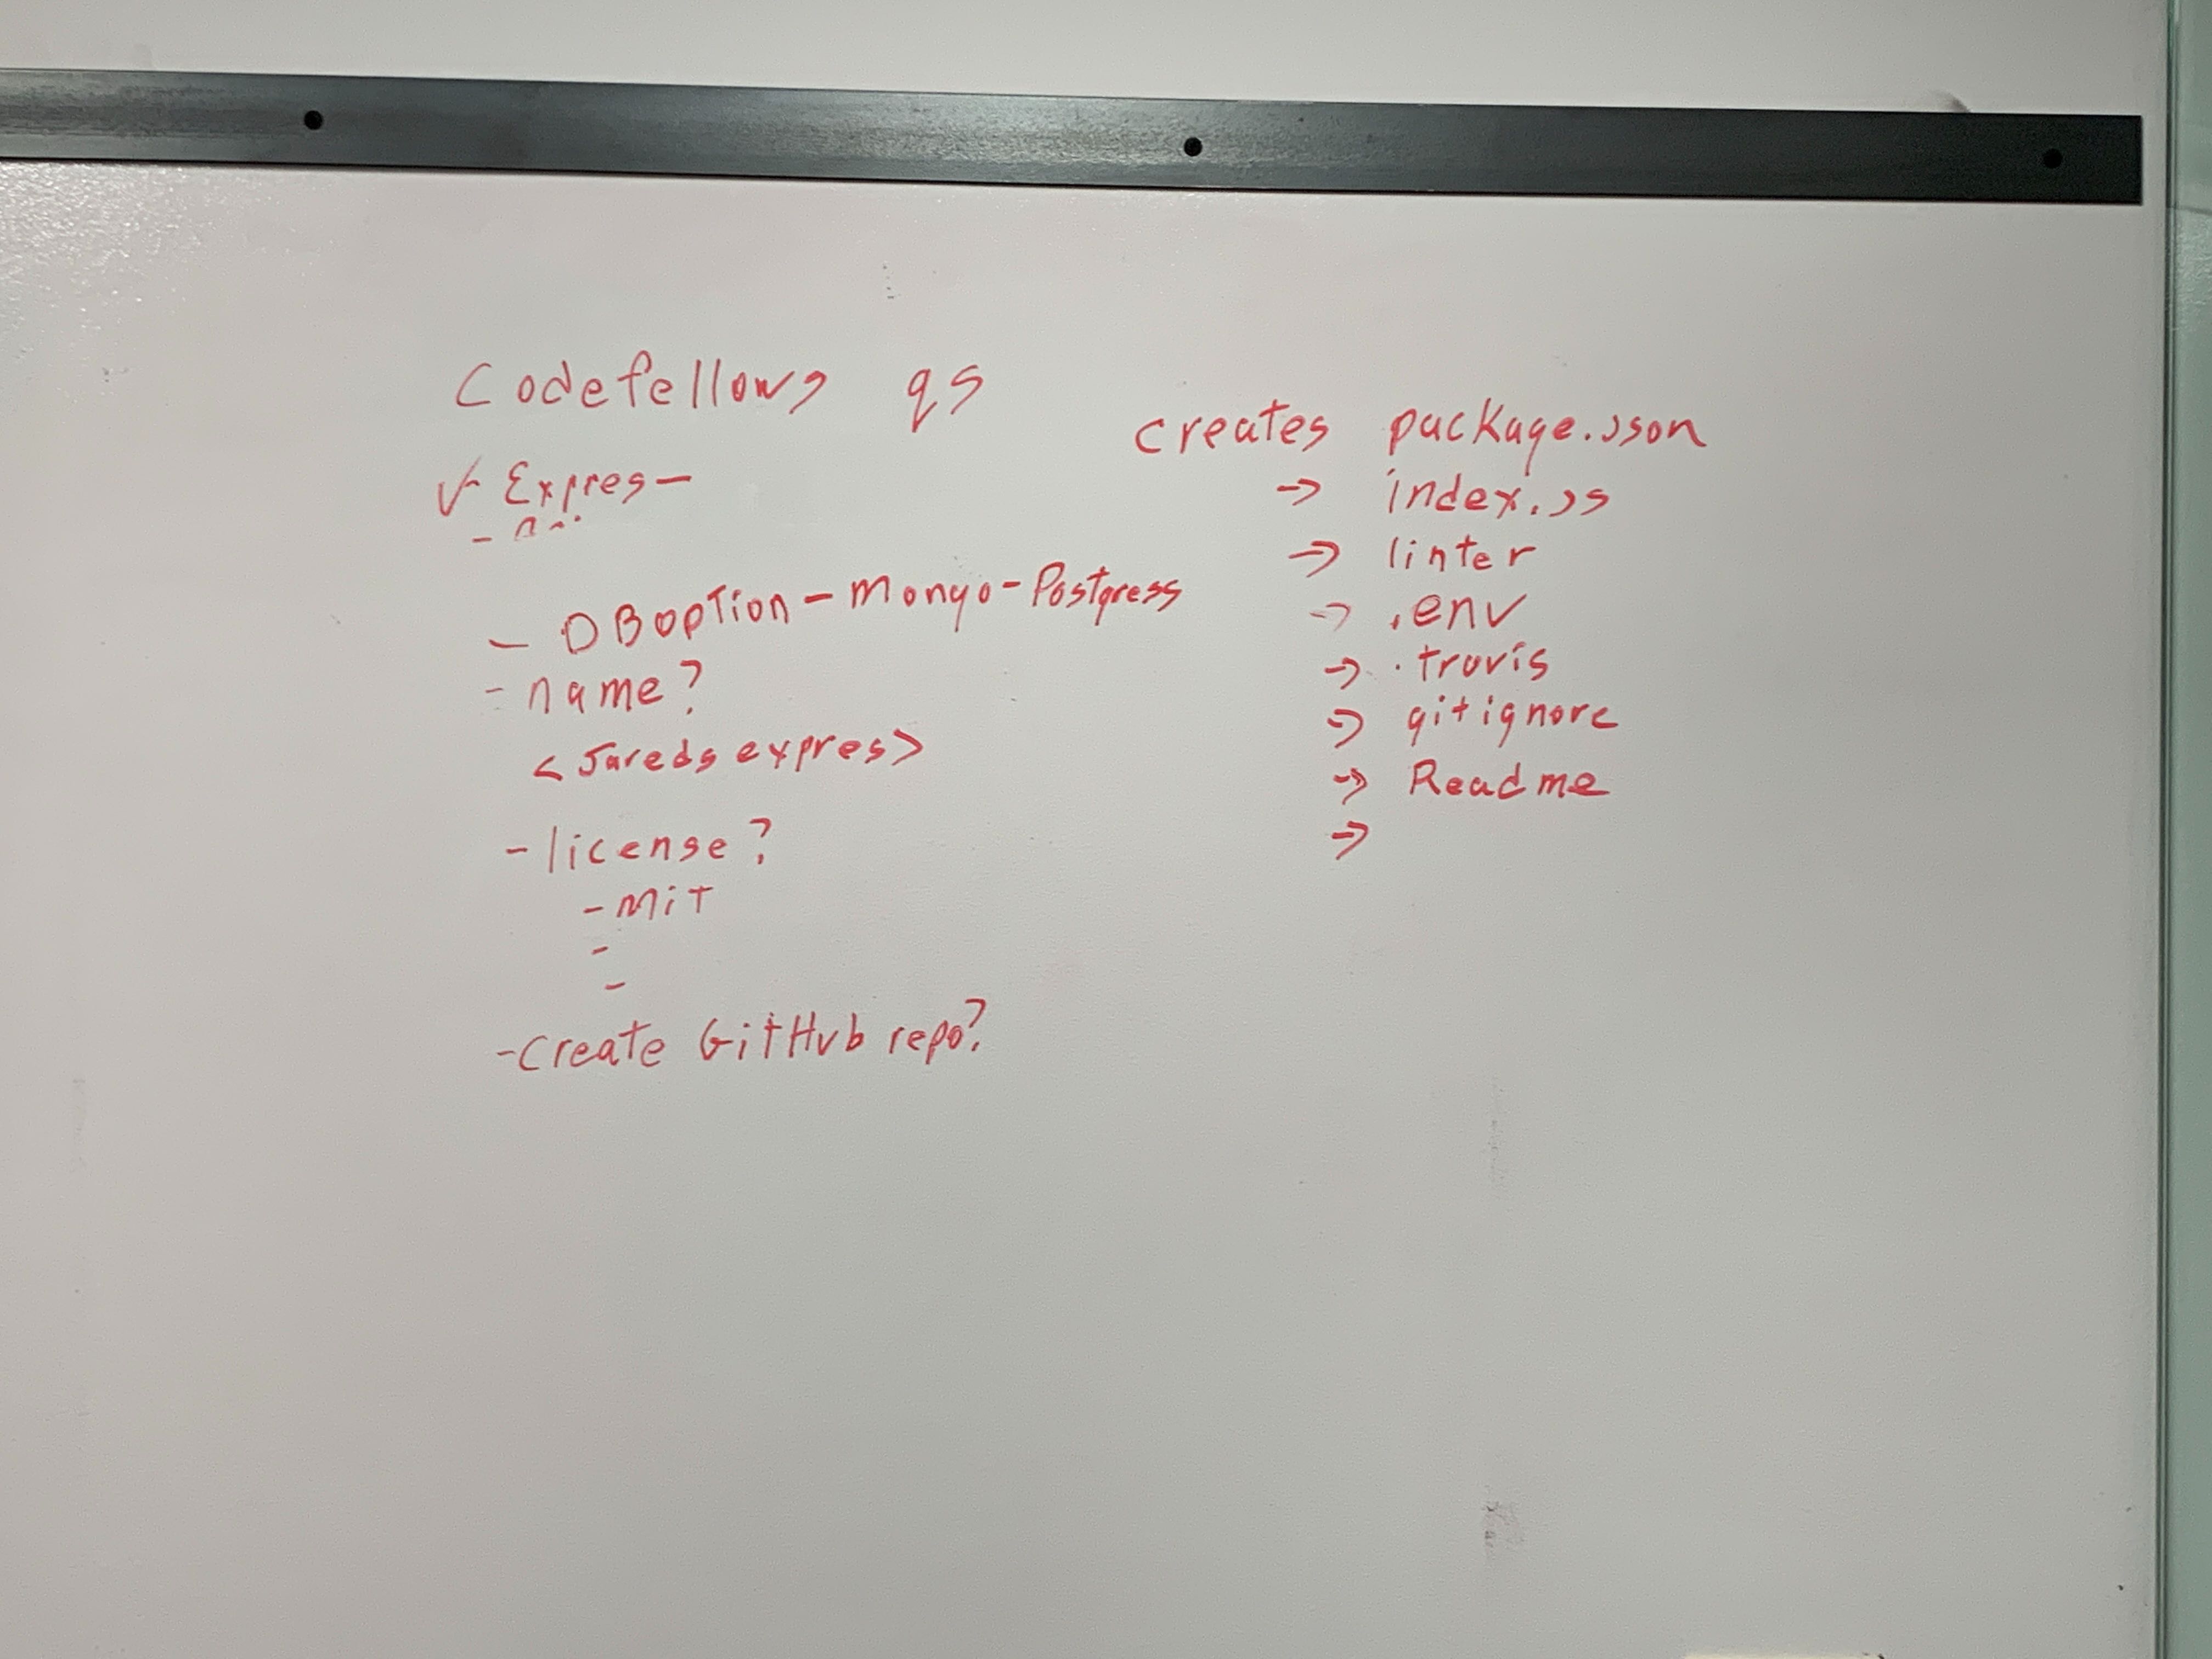 Codefellows qs
✓ Expres -
- DB option - Mongo - Postgress
- name?
<Jareds expres>
- license?
- MiT
-
-
- Create GitHub repo?
creates package.json
→ index.js
→ linter
→ .env
→ .travis
→ gitignore
→ Readme
→